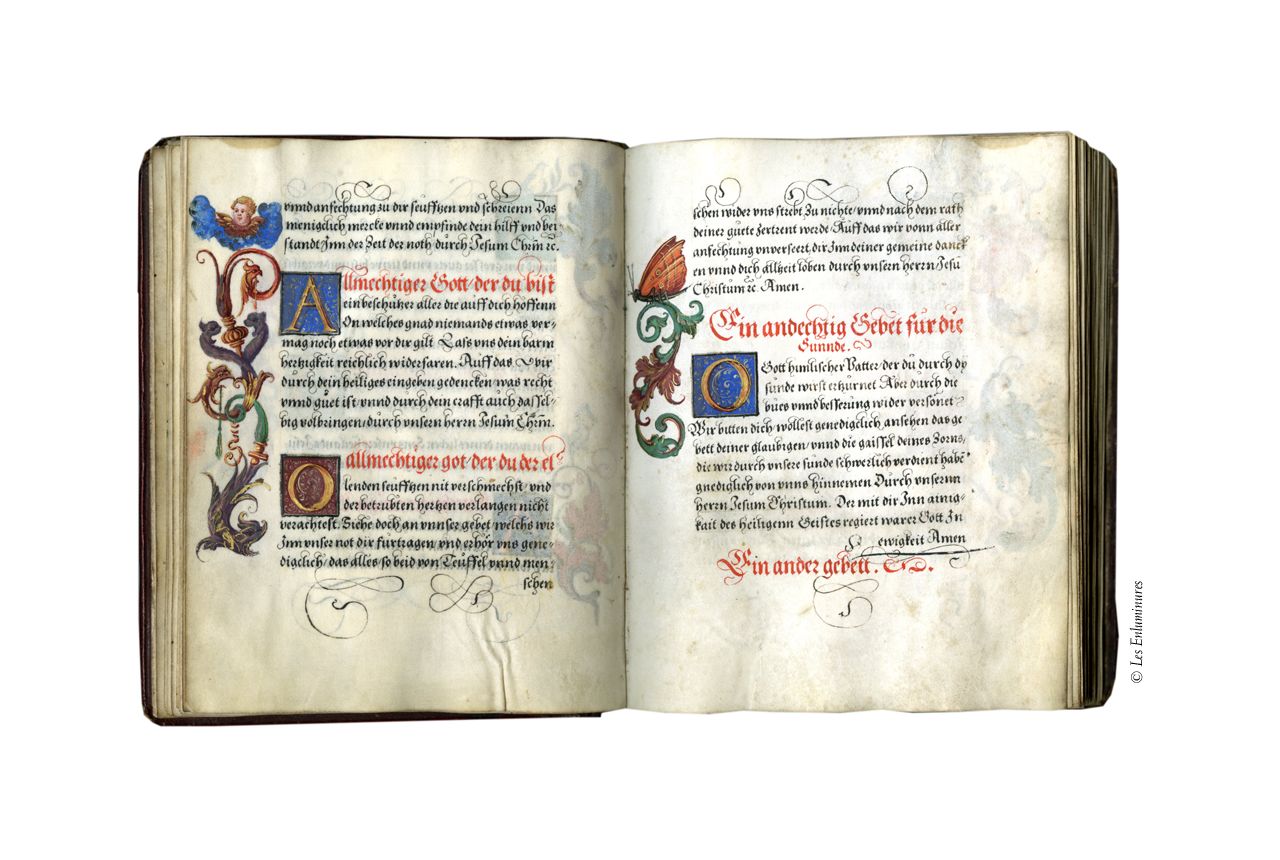 vnnd anfechtung zu dir seufftzen vnd schreienn Das
meniglich mercke vnnd empfinde dein hilff vnd bei
standt Inn der Zeit der noth durch Jesum Chrin ⁊c.
Allmechtiger Gott/ der du bist
ein beschutzer aller die auff dich hoffenn
On welches gnad niemands etwas ver-
mag noch etwas vor dir gilt Lass vns dein barm
hertzigkeit reichlich widerfaren. Auff das wir
durch dein heiliges eingeben gedencken was recht
vnnd güet ist/ vnnd durch dein crafft auch dassel-
big volbringen/ durch vnsern herrn Jesum Chrin.
O allmechtiger got/ der du der el
lenden seufftzen nit verschmechst/ vnd
der betrubten hertzen verlangen nicht
verachtest. Siehe doch an vnnser gebet/ welchs wir
Inn vnser not dir furtragen/ vnd erhör vns gene-
digclich/ das alles/ so beid von Teuffel vnnd men-
schen
schen wider vns strebt Zu nichte/ vnnd nach dem rath
deiner guete Zertrent werde/ Auff das wir vonn aller
anfechtung vnverseert/ dir Inn deiner gemeine danck
en vnnd dich allzeit loben durch vnsern herrn Jesu
Christum ⁊c. Amen.
Ein andechtig Gebet fur die
Sunnde.
O Gott himlischer Vatter/ der du durch dy
sunde wirst erzurnet Aber durch die
bues vnnd besserung wider versönet
Wir bitten dich/ wollest genediglich ansehen das ge
bett deiner glaubigen/ vnnd die gaissel deines Zorns/
die wir durch vnsere sunde schwerlich verdient habē
gnediglich von vnns hinnemen Durch vnsernn
herrn Jesum Christum. Der mit dir Inn ainig-
kait des heiligenn Geistes regiert warer Gott In
ewigkeit Amen
Ein ander gebett.
© Les Enluminures